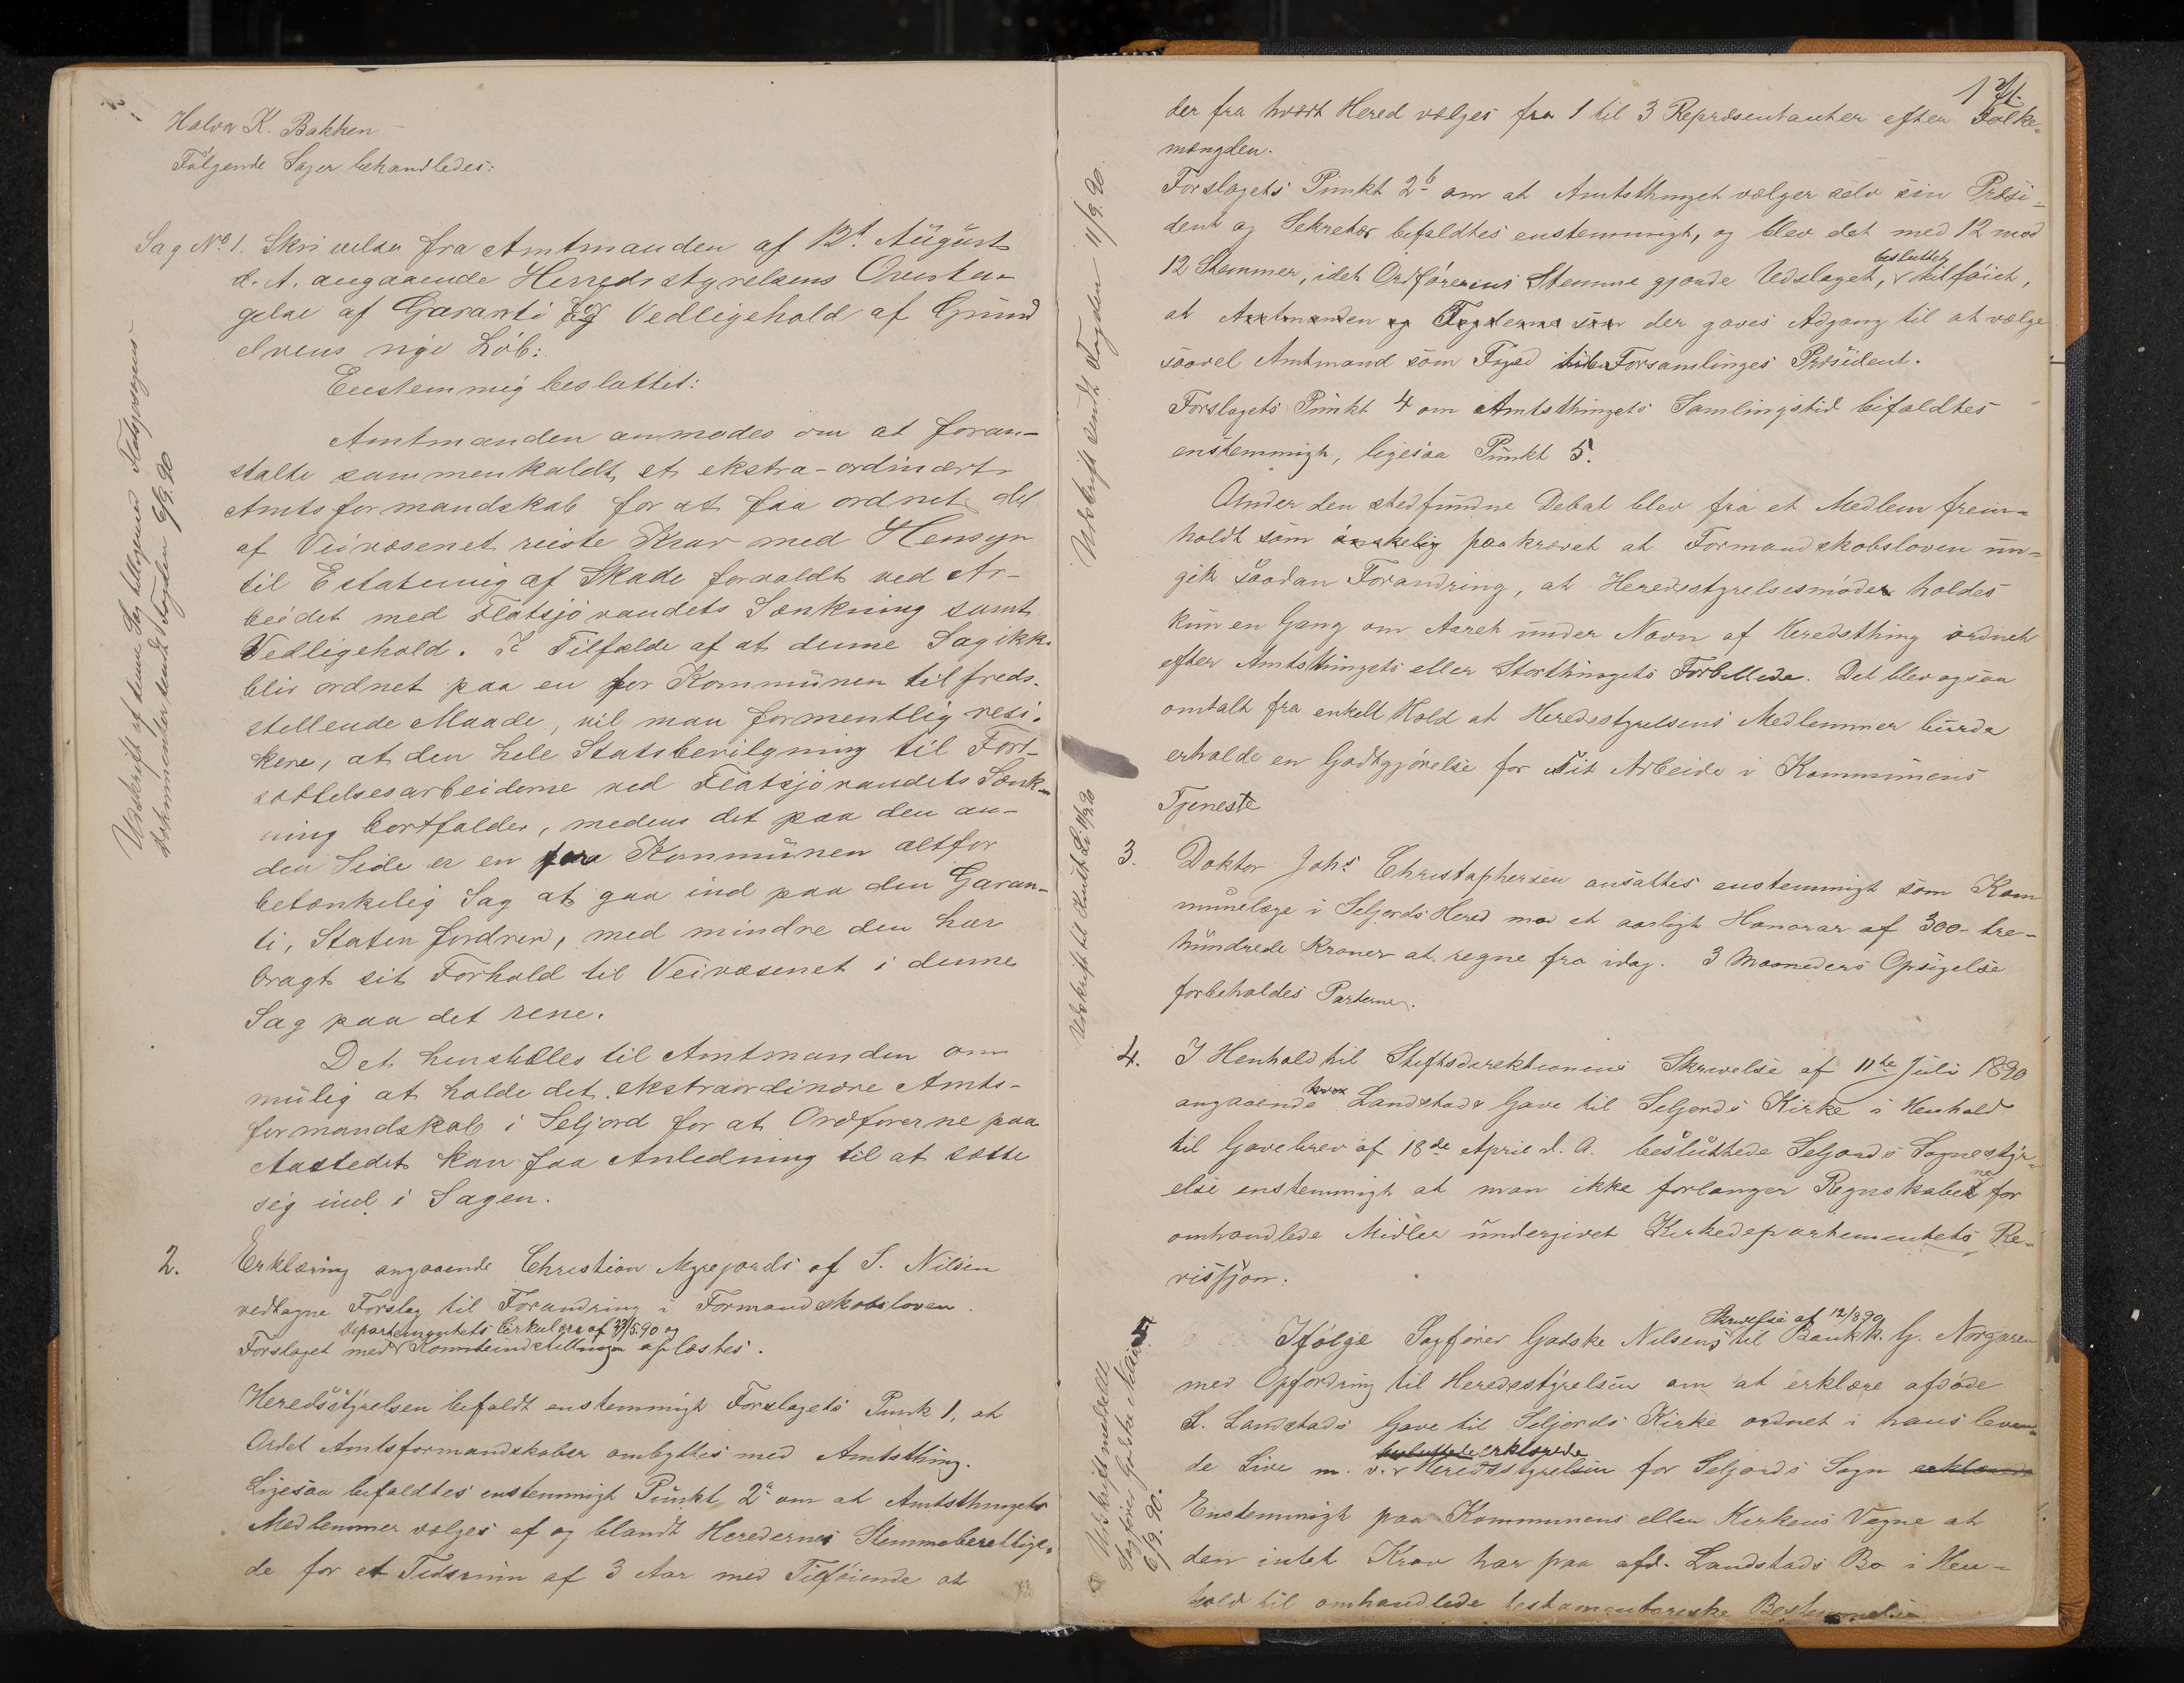 Halvor K. Bakken
Følgende Sager behandledes:
Sag No 1. Skrivelse fra Amtmanden af 12t August
d. A. angaaende Herredsstyrelsens Overta-
gelse af Garanti og Vedligehold af Grund
elvens nye Løb:
Enstemmig besluttet:
Amtmanden anmodes om at foran-
stalte sammenkaldt et ekstra-ordinært
Amtsformandskab for at faa ordnet det
af Veivæsenet reiste Krav med Hensyn
til Erstatning af Skade forvoldt ved Ar-
beidet med Flatsjøvandets Sænkning samt
Vedligehold. I Tilfælde af at denne Sag ikke
blir ordnet paa en for Kommunen tilfreds-
stillende Maade, vil man formentlig resi-
kere, at den hele Statsbevilgning til Fort-
sættelsesarbeiderne ved Flatsjøvandets Sænk-
ning bortfalder, medens det paa den an-
den Side er en for Kommunen altfor
betænkelig Sag at gaa ind paa den Garan-
ti, Staten fordrer, med mindre den har
bragt sit Forhold til Veivæsenet i denne
Sag paa det rene.
Det henstilles til Amtmanden om
mulig at holde det ekstraordinære Amts-
formandskab i Seljord for at Ordførerne paa
Aastedet kan faa Anledning til at sætte
sig ind i Sagen.
Udskrift af denne Sag tilligemed
Dokumenter sendt Fogden 6/9.90
2. Erklæring angaaende Christian Myregjords af S. Nilsen
vedtagne Forslag til Forandring i Formandskabsloven.
Departementets Cirkulære af /5.90 og
Forslaget med Komiteindstillingen oplæstes.
Heredsstyrelsen bifaldt enstemmigt Forslagets Punk 1, at
Ordet Amtsformandskaber ombyttes med Amtsthing.
Ligesaa bifaldtes enstemmigt Punkt 2a om at Amtsthingets
Medlemmer vælges af og blandt Heredernes Stemmeberettige-
de for et Tidsrum af 3 Aar med Tilføiende at
der fra hvert Hered vælges fra 1 til 3 Repræsentanter efter Folke-
mængden.
Forslagets Punkt 2b om at Amtsthinget vælger selv sin Præsi-
dent og Sekretær bifaldtes enstemmigt, og blev det med 12 mod
besluttet
12 Stemmer, idet Ordførerens Stemme gjorde Udslaget, tilføiet,
at Amtmanden og Fogderne som der gaves Adgang til at vælge
saavel Amtmand som Foged til Forsamlinges Præsident.
Forslagets Punkt 4 om Amtsthingets Samlingstid bifaldtes
enstemmigt, ligesaa Punkt 5.
Under den stedfundne Debat blev fra et Medlem frem-
holdt som ønskelig paakrævet at Formandskabsloven un-
gik saadan Forandring, at Heredsstyrelsesmøder holdes
kun en Gang om Aaret under Navn af Heredsthing ordnet
efter Amtsthingets eller Storthingets Forbillede. Det blev ogsaa
omtalt fra enkelt Hold at Heredsstyrelsens Medlemmer burde
erholde en Godtgjørelse for sit Arbeide i Kommunens
Tjeneste
Udskrift sendt Fogden 11/9.90
3. Doktor Johs Christophersen ansattes enstemmigt som Kom
munelæge i Seljords Hered mod et aarligt Honorar af 300- tre-
hundrede Kroner at regne fra idag. 3 Maaneders Opsigelse
forbeholdes Parterne.
4. I Henhold til Stiftsdirektionens Skrivelse af 11te Juli 1890
angaaende Landstads Gave til Seljords Kirke i Henhold
til Gavebrev af 18de April d. A. besluttede Seljords Sognestyr-
else enstemmigt at man ikke forlanger Regnskaberne for
omhandlede Midler undergivet Kirkedepartementets Re-
vission.
Skrivelse af 12/8 90
5. Ifølge Sagfører Godske Nilsens til Bankk. G. Norgaren
med Opfordring til Heredsstyrelsen om at erklære afdøde
S. Landstads Gave til Seljords Kirke ordnet i hans leven-
besluttede erklærede
de Live m. v. Heredsstyrelsen for Seljords Sogn erklærede
Enstemmigt paa Kommunens eller Kirkens Vegne at
den intet Krav har paa afd. Landstads Bo i Hen-
hold til omhandlede testamentariske Bestemmelse
Udskrift meddelt
Sagfører Godske Nilsen
6/9.90.